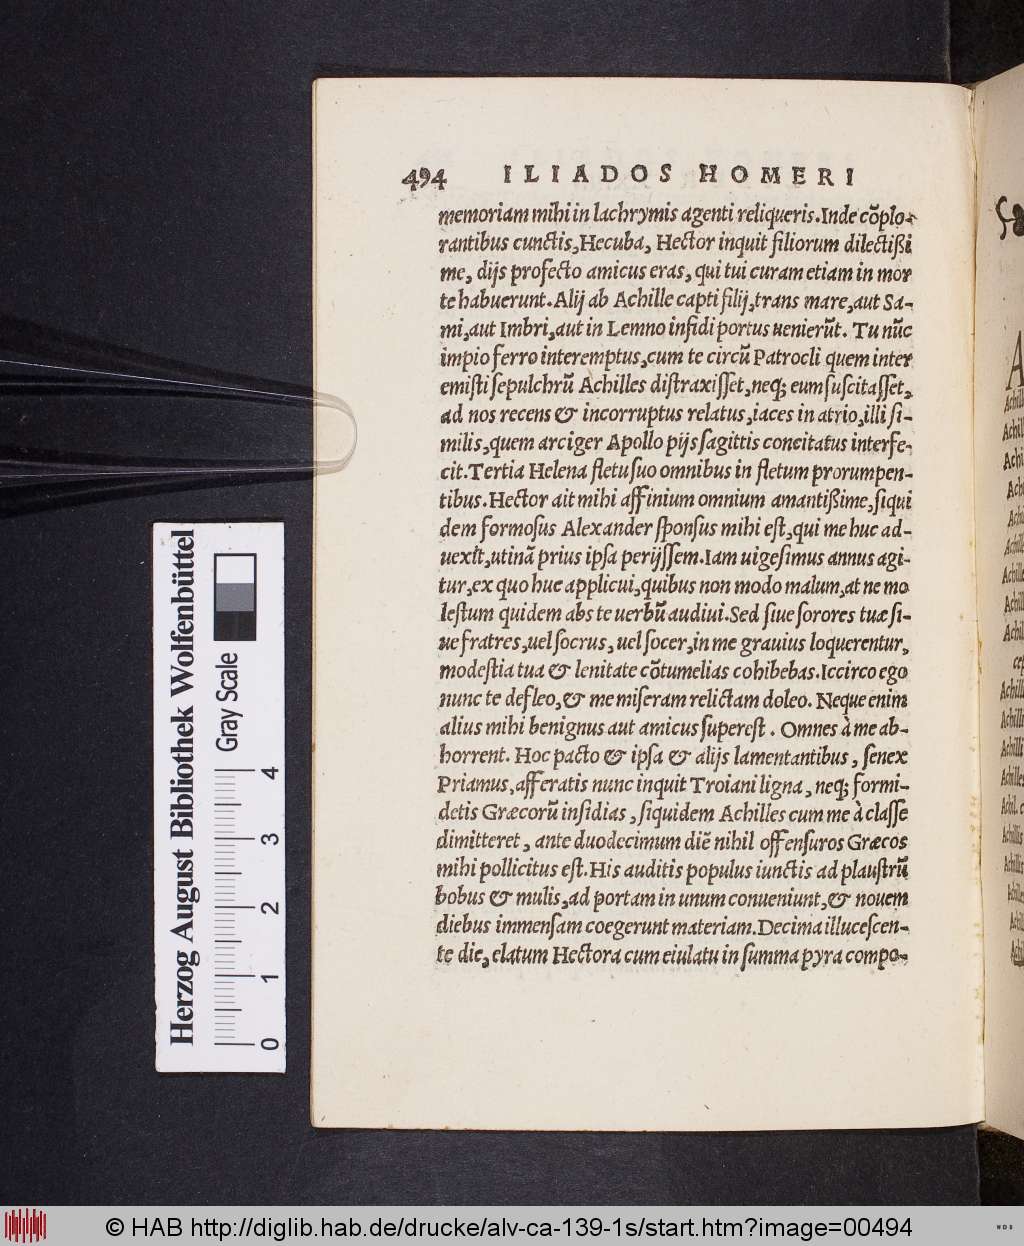 494 ILIADOS HOMERI
memoriam mihi in lachrymis agenti reliqueris. Inde cõplo-
rantibus cunctis, Hecuba, Hector inquit filiorum dilectißi
me, dijs profecto amicus eras, qui tui curam etiam in mor
te habuerunt. Alij ab Achille capti filij, trans mare, aut Sa-
mi, aut Imbri, aut in Lemno infidi portus uenierũt. Tu nũc
impio ferro interemptus, cum te circũ Patrocli quem inter
emisti sepulchrũ Achilles distraxisset, neq; eum suscitasset,
ad nos recens & incorruptus relatus, iaces in atrio, illi si-
milis, quem arciger Apollo pijs sagittis concitatus interfe-
cit. Tertia Helena fletu suo omnibus in fletum prorumpen-
tibus. Hector ait mihi affinium omnium amantißime, siqui
dem formosus Alexander sponsus mihi est, qui me huc ad-
uexit, utinã prius ipsa perijssem. Iam uigesimus annus agi-
tur, ex quo huc applicui, quibus non modo malum, at ne mo
lestum quidem abs te uerbũ audiui. Sed siue sorores tuæ si-
ue fratres, uel socrus, uel socer, in me grauius loquerentur,
modestia tua & lenitate cõtumelias cohibebas. Iccirco ego
nunc te defleo, & me miseram relictam doleo. Neque enim
alius mihi benignus aut amicus superest. Omnes à me ab-
horrent. Hoc pacto & ipsa & alijs lamentantibus, senex
Priamus, afferatis nunc inquit Troiani ligna, neq; formi-
detis Græcorũ insidias, siquidem Achilles cum me à classe
dimitteret, ante duodecimum diẽ nihil offensuros Græcos
mihi pollicitus est. His auditis populus iunctis ad plaustrũ
bobus & mulis, ad portam in unum conueniunt, & nouem
diebus immensam coegerunt materiam. Decima illucescen-
te die, elatum Hectora cum eiulatu in summa pyra compo-
Herzog August Bibliothek Wolfenbüttel
Gray Scale
0 1 2 3 4
© HAB http://diglib.hab.de/drucke/alv-ca-139-1s/start.htm?image=00494